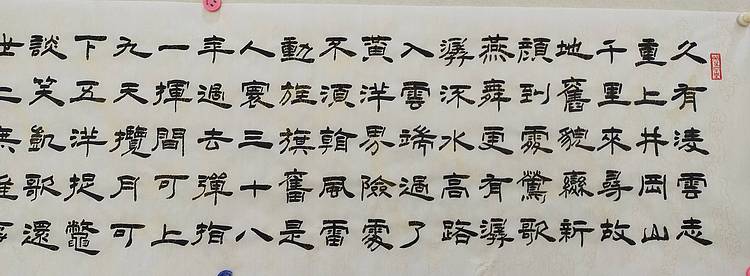 久有淩雲志
重上井岡山
千里來尋故
地舊貌變新
顔到處鶯歌
燕舞更有潺
潺流水高路
入雲端過了
黄洋界險處
不須看風雷
動旌旗奮是
人寰三十八
年過去彈指
一揮間可上
九天攬月可
下五洋捉鱉
談笑凱歌還